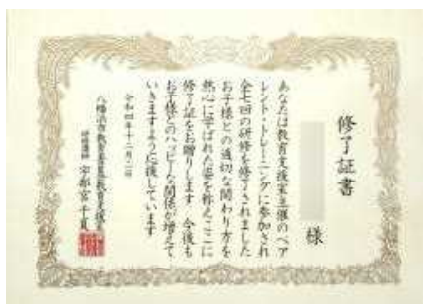 修了証書
様
あなたは教育支援室主催のペア
レント・トレーニングに参加され
全七回の研修を修了されました
お子様との適切な関わり方を
熱心に学ばれた姿を称えここに
修了証をお贈りします 今後も
お子様とのハッピーな関係が増えて
いきますよう応援しています
令和四年十二月二日
八幡浜市教育委員会教育支援室
宇都宮